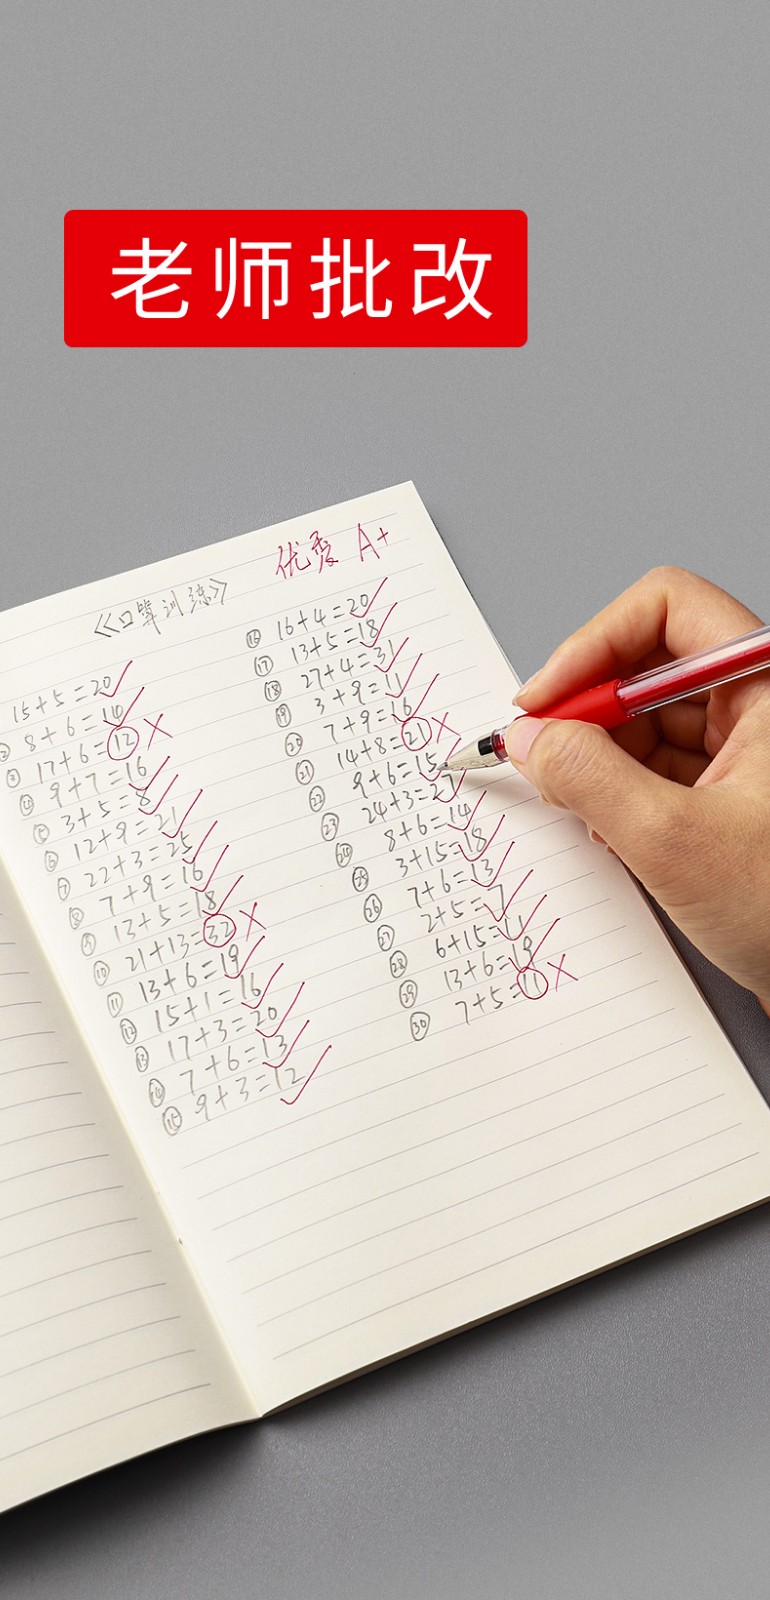 老师批改
优秀 A+
《口算训练》
15+5=20
② 8+6=14
③ 17+6=12
④ 9+7=16
⑤ 3+5=8
⑥ 12+9=21
⑦ 22+3=25
⑧ 7+9=16
⑨ 13+5=18
⑩ 21+13=32
⑪ 13+6=19
⑫ 15+1=16
⑬ 17+3=20
⑭ 7+6=13
⑮ 9+3=12
⑯ 16+4=20
⑰ 13+5=18
⑱ 27+4=31
⑲ 3+9=11
⑳ 7+9=16
㉑ 14+8=21
㉒ 9+6=15
㉓ 24+3=27
㉔ 8+6=14
㉕ 3+15=18
㉖ 7+6=13
㉗ 2+5=7
㉘ 6+15=11
㉙ 13+6=19
㉚ 7+5=11